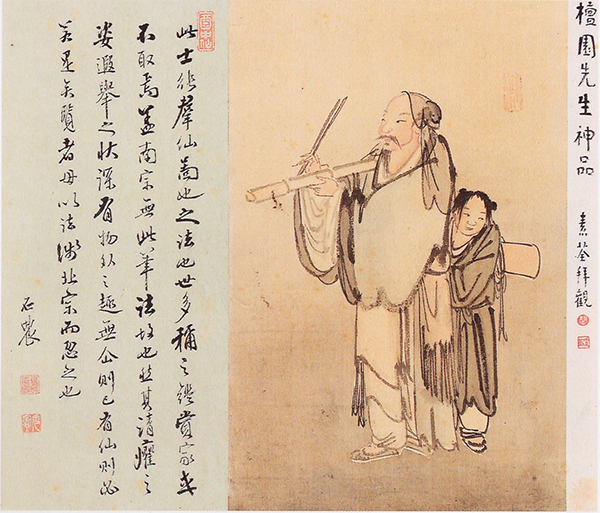 檀園先生神品
素荃拜觀
此士羣仙啚也之法也世多稱之鑑賞家或
不取焉蓋南宗無此筆法故也然其清癯之
姿遐舉之狀深有物外之趣無仙則已有仙則必
若是矣覽者毋以法涉北宗而忽之也
石農